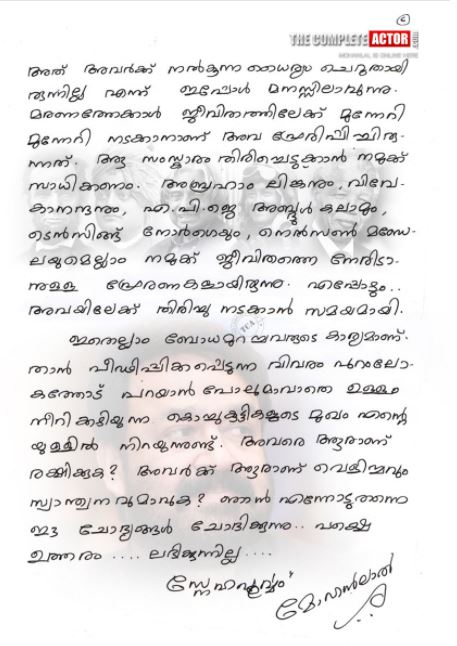 6
THE COMPLETE ACTOR
MOHANLAL IS ONLINE HERE
അത് അവർക്ക് നൽകുന്ന ധൈര്യം ചെറുതായി
രുന്നില്ല എന്ന് ഇപ്പോൾ മനസ്സിലാവുന്നു.
മരണത്തേക്കാൾ ജീവിതത്തിലേക്ക് മുന്നേറി
മുന്നേറി നടക്കാനാണ് അവ പ്രേരിപ്പിച്ചിരു-
ന്നത്. ആ സംസ്കാരം തിരിച്ചെടുക്കാൻ നമുക്ക്
സാധിക്കണം. അബ്രഹാം ലിങ്കനും, വിവേ-
കാനന്ദനും, എ.പി.ജെ അബ്ദുൾ കലാമും,
ടെൻസിങ്ങ് നോർഗെയും, നെൽസൺ മണ്ടേ-
ലയുമെല്ലാം നമുക്ക് ജീവിതത്തെ നേരിടാ-
നുള്ള പ്രേരണകളായിരുന്നു. എപ്പോഴും..
അവയിലേക്ക് തിരിച്ചു നടക്കാൻ സമയമായി.
ഇതെല്ലാം ബോധമുറച്ചവരുടെ കാര്യമാണ്.
താൻ പീഢിപ്പിക്കപ്പെടുന്ന വിവരം പുറംലോ-
കത്തോട് പറയാൻ പോലുമാവാതെ ഉള്ളം
നീറി കഴിയുന്ന കൊച്ചുകുട്ടികളുടെ മുഖം എന്റെ
യുള്ളിൽ നിറയുന്നുണ്ട്. അവരെ ആരാണ്
രക്ഷിക്കുക? അവർക്ക് ആരാണ് വെളിച്ചവും
സ്വാന്ത്വനവുമാവുക? ഞാൻ എന്നോടുതന്നെ
ഈ ചോദ്യങ്ങൾ ചോദിക്കുന്നു.. പക്ഷെ
ഉത്തരം .... ലഭിക്കുന്നില്ല ....
സ്നേഹപൂർവ്വം
മോഹൻലാൽ